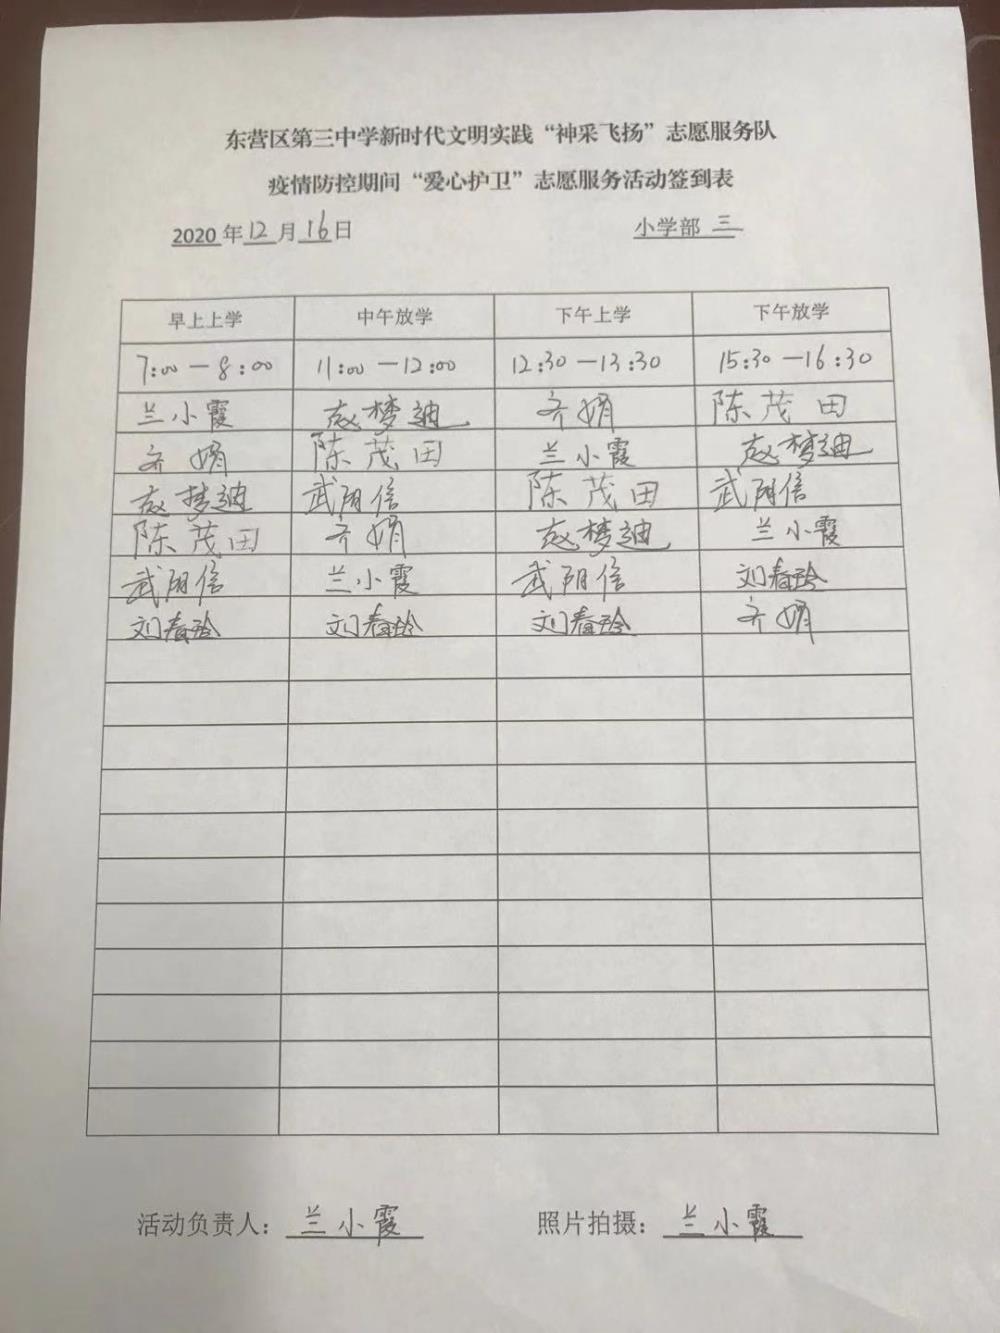 东营区第三中学新时代文明实践“神采飞扬”志愿服务队
疫情防控期间“爱心护卫”志愿服务活动签到表
2020 年 12 月 16 日 小学部 三
早上上学 中午放学 下午上学 下午放学
7:00—8:00 11:00—12:00 12:30—13:30 15:30—16:30
兰小霞 赵梦迪 齐娟 陈茂田
齐娟 陈茂田 兰小霞 赵梦迪
赵梦迪 武阴信 陈茂田 武阴信
陈茂田 齐娟 赵梦迪 兰小霞
武阴信 兰小霞 武阴信 刘春玲
刘春玲 刘春玲 刘春玲 齐娟
活动负责人：兰小霞 照片拍摄：兰小霞